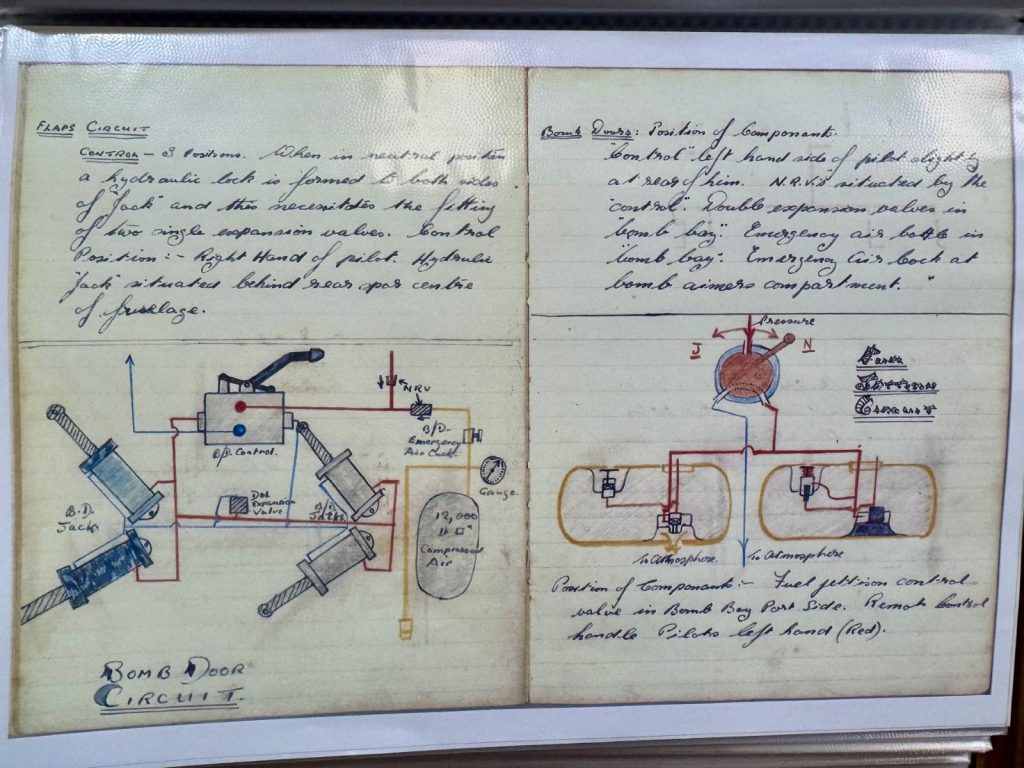 FLAPS CIRCUIT
CONTROL - 3 Positions. When in neutral position
a hydraulic lock is formed to both sides
of "Jack" and this necessitates the fitting
of two single expansion valves. Control
Position :- Right Hand of pilot. Hydraulic
"Jack" situated behind rear spar centre
of fuselage.
NRV
B/D. Control.
B/D.
Emergency
Air Cock.
Gauge
B.D.
Jack
Dbl
Expansion
Valve
B.D.
Jacks
12,000
lb □"
Compressed
Air
BOMB DOOR
CIRCUIT.
Bomb Doors: Position of Componants.
"Control" left hand side of pilot slightly
at rear of him. N.R.V. is situated by the
"control". Double expansion valves in
"bomb bay". Emergency air bottle in
"bomb bay". Emergency Air Cock at
bomb aimers compartment."
Pressure
J N
Circuit
To Atmosphere. To Atmosphere
Position of Componants :- Fuel jettison control
valve in Bomb Bay Port Side. Remote Control
handle Pilots left hand (Red).